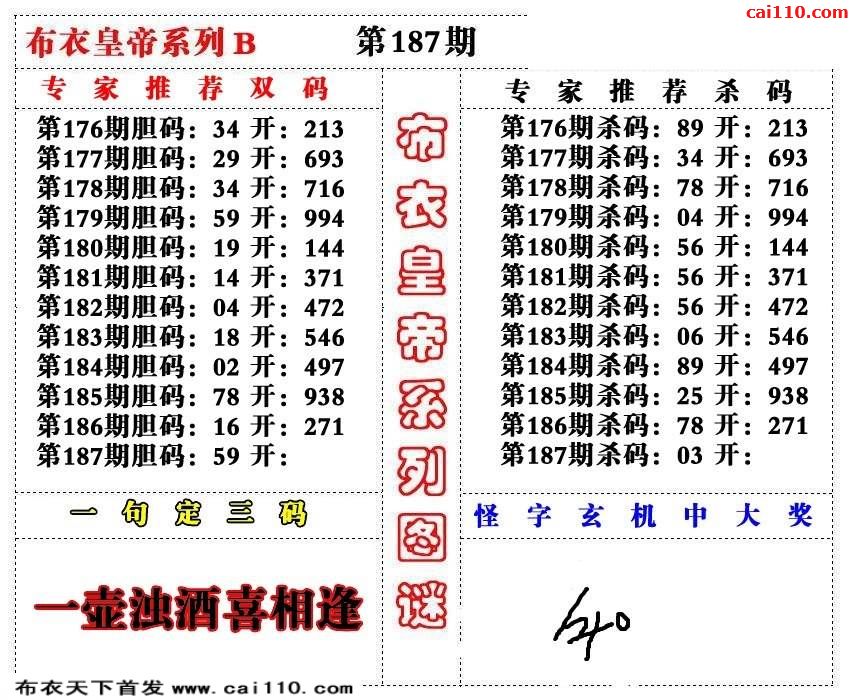 cai110.com
布衣皇帝系列B
第187期
专家推荐双码
第176期胆码：34 开：213
第177期胆码：29 开：693
第178期胆码：34 开：716
第179期胆码：59 开：994
第180期胆码：19 开：144
第181期胆码：14 开：371
第182期胆码：04 开：472
第183期胆码：18 开：546
第184期胆码：02 开：497
第185期胆码：78 开：938
第186期胆码：16 开：271
第187期胆码：59 开：
一句定三码
一壶浊酒喜相逢
布衣皇帝系列图谜
专家推荐杀码
第176期杀码：89 开：213
第177期杀码：34 开：693
第178期杀码：78 开：716
第179期杀码：04 开：994
第180期杀码：56 开：144
第181期杀码：56 开：371
第182期杀码：56 开：472
第183期杀码：06 开：546
第184期杀码：89 开：497
第185期杀码：25 开：938
第186期杀码：78 开：271
第187期杀码：03 开：
怪字玄机中大奖
布衣天下首发 www.cai110.com